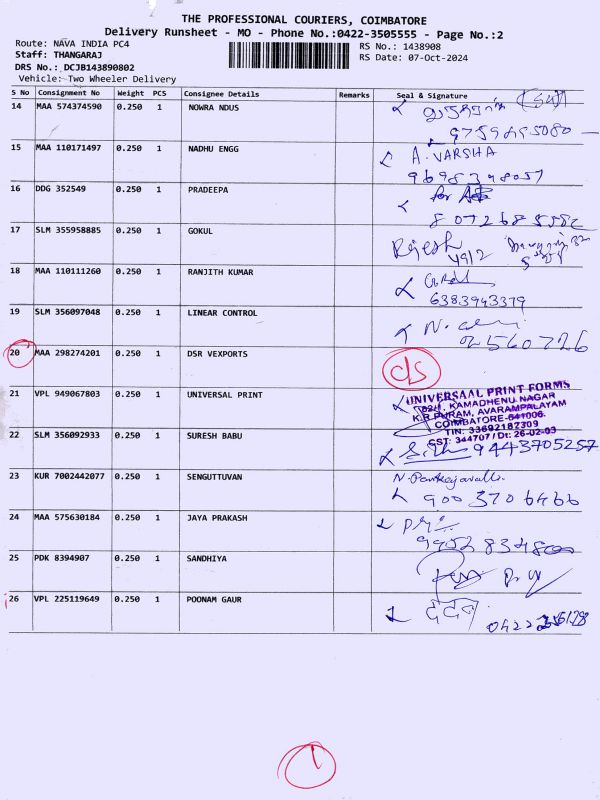 THE PROFESSIONAL COURIERS, COIMBATORE
Delivery Runsheet - MO - Phone No.:0422-3505555 - Page No.:2
Route: NAVA INDIA PC4 RS No.: 1438908
Staff: THANGARAJ RS Date: 07-Oct-2024
DRS No.: DCJB143890802
Vehicle: Two Wheeler Delivery
S No Consignment No Weight PCS Consignee Details Remarks Seal & Signature
14 MAA 574374590 0.250 1 NOWRA NDUS
15 MAA 110171497 0.250 1 NADHU ENGG A. VARSHA
9698348057
16 DDG 352549 0.250 1 PRADEEPA
17 SLM 355958885 0.250 1 GOKUL Rajesh
18 MAA 110111260 0.250 1 RANJITH KUMAR
6383943379
19 SLM 356097048 0.250 1 LINEAR CONTROL
20 MAA 298274201 0.250 1 DSR VEXPORTS
21 VPL 949067803 0.250 1 UNIVERSAL PRINT UNIVERSAAL PRINT FORMS
KAMADHENU NAGAR
K.R.PURAM, AVARAMPALAYAM
COIMBATORE-641006.
TIN: 33692187309
CST: 344707 / Dt: 26-02-03
22 SLM 356092933 0.250 1 SURESH BABU 9443705257
23 KUR 7002442077 0.250 1 SENGUTTUVAN
900 370 6466
24 MAA 575630184 0.250 1 JAYA PRAKASH
25 PDK 8394907 0.250 1 SANDHIYA
26 VPL 225119649 0.250 1 POONAM GAUR
1